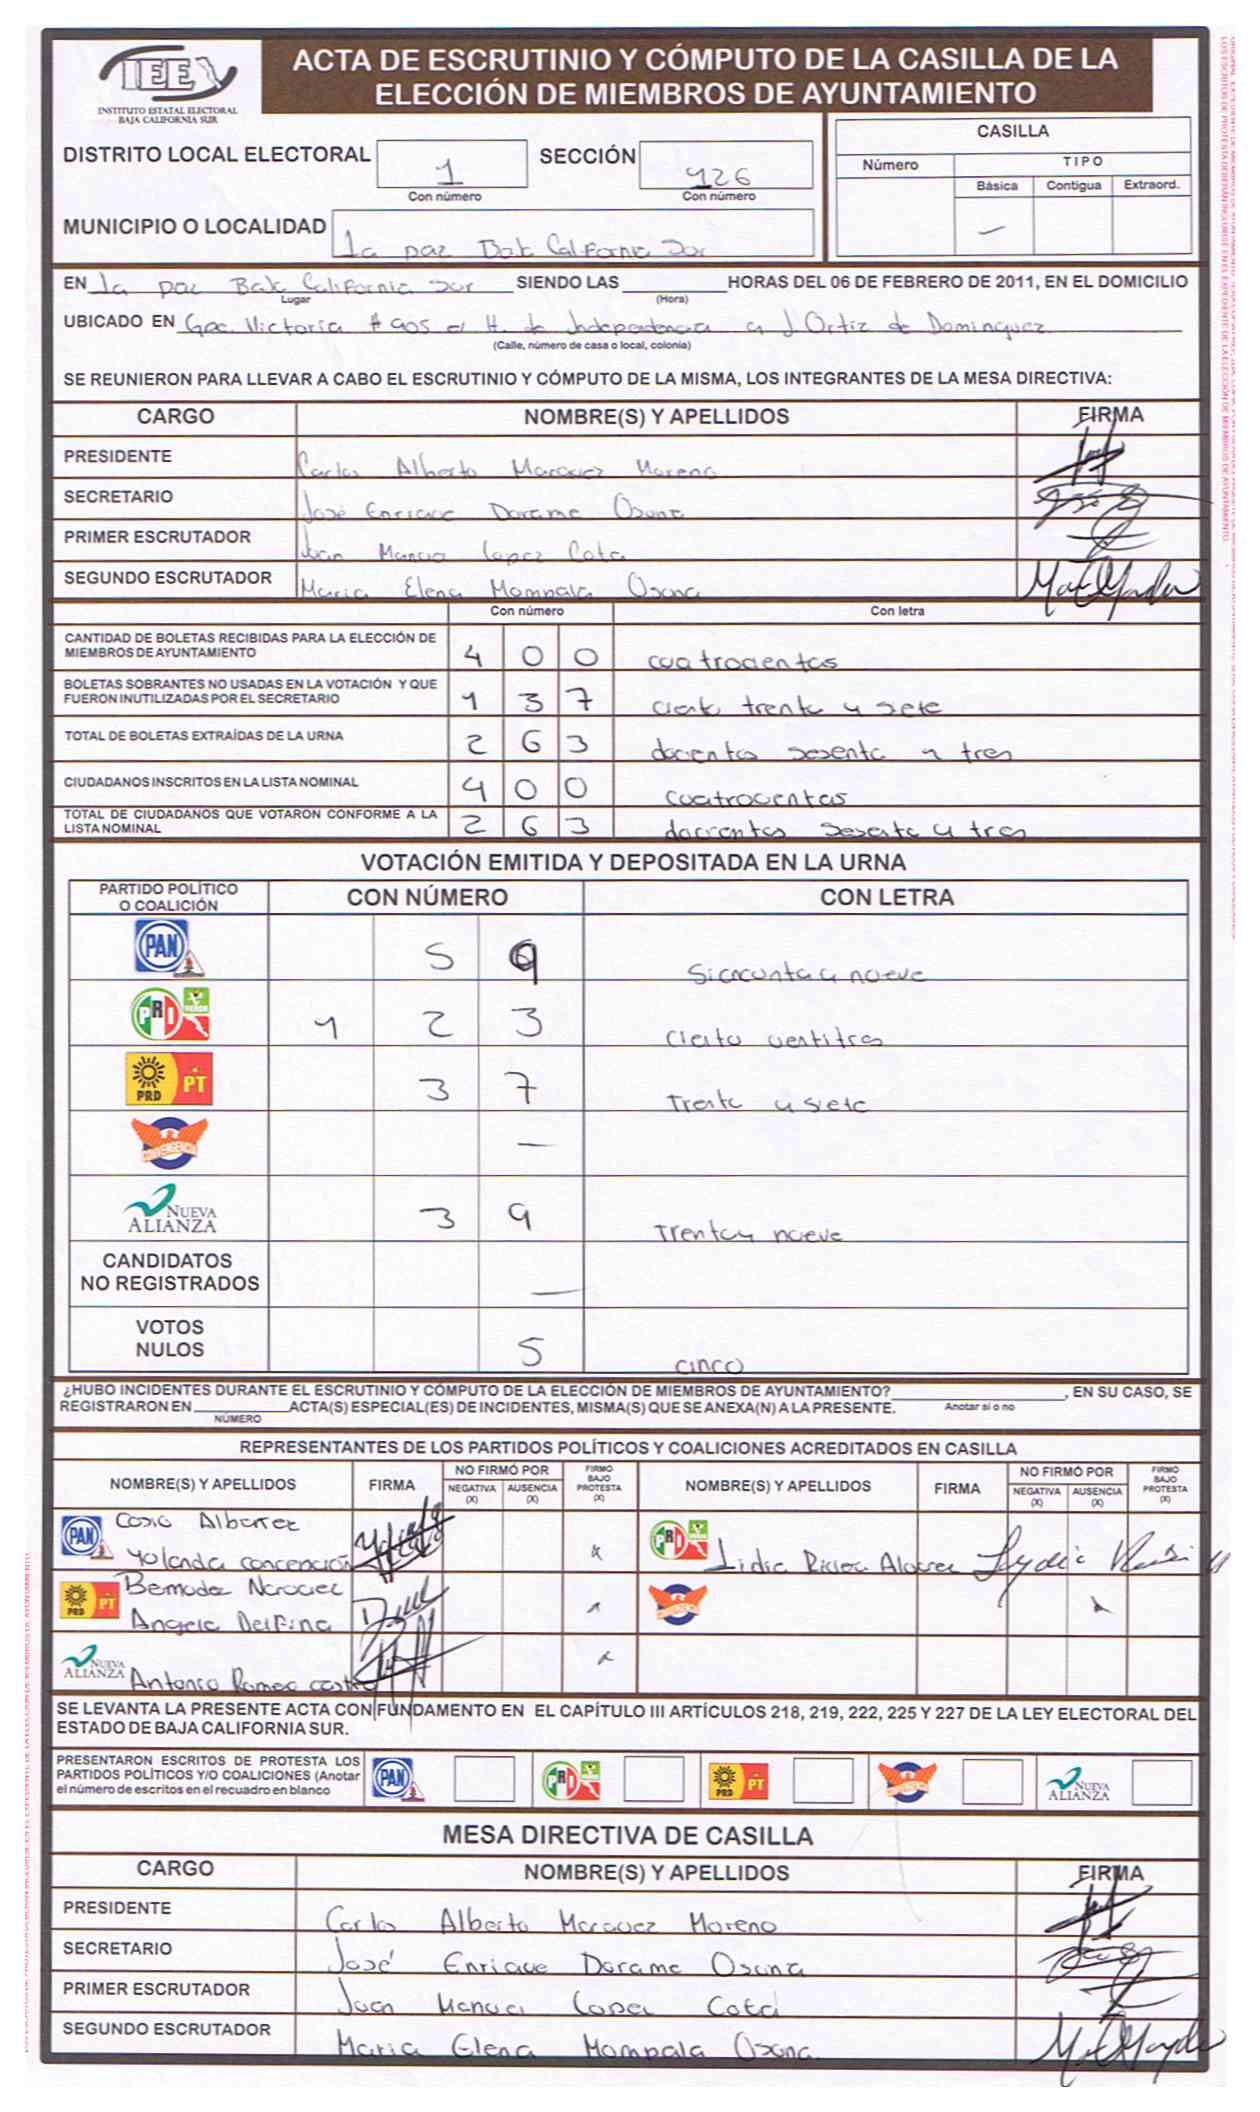 IEE
INSTITUTO ESTATAL ELECTORAL
BAJA CALIFORNIA SUR
ACTA DE ESCRUTINIO Y CÓMPUTO DE LA CASILLA DE LA
ELECCIÓN DE MIEMBROS DE AYUNTAMIENTO
DISTRITO LOCAL ELECTORAL 1 SECCIÓN 126
Con número Con número
CASILLA
Número TIPO
Básica Contigua Extraord.
—
MUNICIPIO O LOCALIDAD La paz Baja California Sur
EN La paz Baja California Sur SIENDO LAS HORAS DEL 06 DE FEBRERO DE 2011, EN EL DOMICILIO
Lugar (Hora)
UBICADO EN Gpe. Victoria # 905 e/ H. de Independencia y J Ortiz de Dominguez
(Calle, número de casa o local, colonia)
SE REUNIERON PARA LLEVAR A CABO EL ESCRUTINIO Y CÓMPUTO DE LA MISMA, LOS INTEGRANTES DE LA MESA DIRECTIVA:
CARGO NOMBRE(S) Y APELLIDOS FIRMA
PRESIDENTE Carlos Alberto Marquez Moreno
SECRETARIO José Enrique Dorame Osuna
PRIMER ESCRUTADOR Juan Manuel Lopez Cota
SEGUNDO ESCRUTADOR Maria Elena Mompala Osuna
Con número Con letra
CANTIDAD DE BOLETAS RECIBIDAS PARA LA ELECCIÓN DE
MIEMBROS DE AYUNTAMIENTO 4 0 0 cuatrocientos
BOLETAS SOBRANTES NO USADAS EN LA VOTACIÓN Y QUE
FUERON INUTILIZADAS POR EL SECRETARIO 1 3 7 ciento trenta y siete
TOTAL DE BOLETAS EXTRAÍDAS DE LA URNA 2 6 3 docientos sesenta y tres
CIUDADANOS INSCRITOS EN LA LISTA NOMINAL 4 0 0 cuatrocientos
TOTAL DE CIUDADANOS QUE VOTARON CONFORME A LA
LISTA NOMINAL 2 6 3 docientos sesenta y tres
VOTACIÓN EMITIDA Y DEPOSITADA EN LA URNA
PARTIDO POLÍTICO
O COALICIÓN CON NÚMERO CON LETRA
PAN 5 9 Sicncunta y nueve
PRI VERDE 1 2 3 Ciento ventitres
PRD PT 3 7 Trenta y siete
CONVERGENCIA —
NUEVA
ALIANZA 3 9 Trenta y nueve
CANDIDATOS
NO REGISTRADOS —
VOTOS
NULOS 5 cinco
¿HUBO INCIDENTES DURANTE EL ESCRUTINIO Y CÓMPUTO DE LA ELECCIÓN DE MIEMBROS DE AYUNTAMIENTO? , EN SU CASO, SE
REGISTRARON EN ACTA(S) ESPECIAL(ES) DE INCIDENTES, MISMA(S) QUE SE ANEXA(N) A LA PRESENTE. Anotar si o no
NÚMERO
REPRESENTANTES DE LOS PARTIDOS POLÍTICOS Y COALICIONES ACREDITADOS EN CASILLA
NOMBRE(S) Y APELLIDOS FIRMA NO FIRMÓ POR NEGATIVA (X) AUSENCIA (X) FIRMÓ BAJO PROTESTA (X) NOMBRE(S) Y APELLIDOS FIRMA NO FIRMÓ POR NEGATIVA (X) AUSENCIA (X) FIRMÓ BAJO PROTESTA (X)
PAN Cosio
Yolanda concepción x PRI VERDE Lidia Rivera Alvarez
PRD PT Bermudez
Angela Delfina x CONVERGENCIA x
NUEVA
ALIANZA Antonio Romeo x
SE LEVANTA LA PRESENTE ACTA CON FUNDAMENTO EN EL CAPÍTULO III ARTÍCULOS 218, 219, 222, 225 Y 227 DE LA LEY ELECTORAL DEL
ESTADO DE BAJA CALIFORNIA SUR.
PRESENTARON ESCRITOS DE PROTESTA LOS
PARTIDOS POLÍTICOS Y/O COALICIONES (Anotar
el número de escritos en el recuadro en blanco
PAN PRI VERDE PRD PT CONVERGENCIA NUEVA ALIANZA
MESA DIRECTIVA DE CASILLA
CARGO NOMBRE(S) Y APELLIDOS FIRMA
PRESIDENTE Carlos Alberto Marquez Moreno
SECRETARIO José Enrique Dorame Osuna
PRIMER ESCRUTADOR Juan Manuel Lopez Cota
SEGUNDO ESCRUTADOR Maria Elena Mompala Osuna